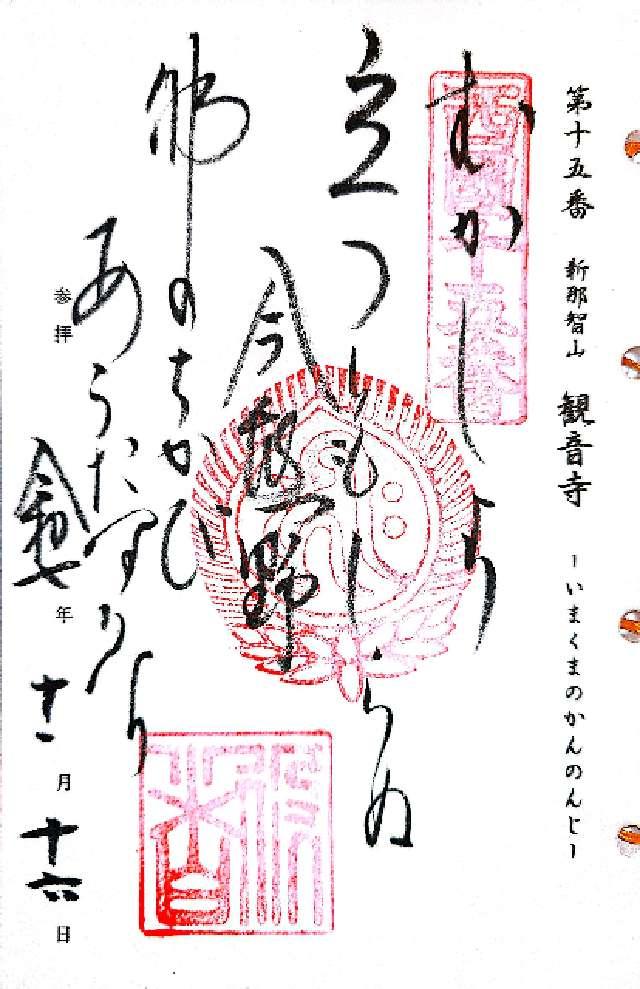 第十五番 新那智山 観音寺 ーいまくまのかんのんじー
西国十五番
むかしより
立つともしらぬ
今熊野
佛のちかひ
あらたなりけり
参拝
令和七年十一月十六日